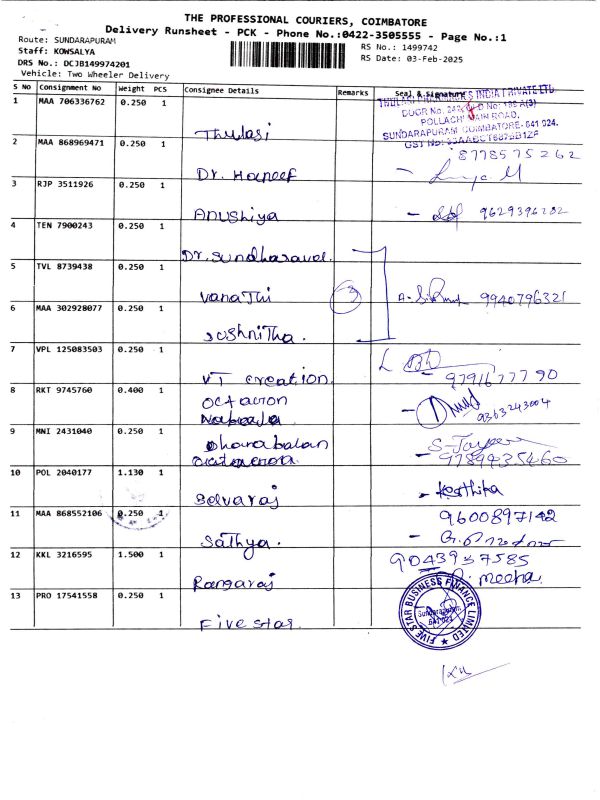 THE PROFESSIONAL COURIERS, COIMBATORE
Delivery Runsheet - PCK - Phone No.:0422-3505555 - Page No.:1
Route: SUNDARAPURAM
Staff: KOWSALYA
DRS No.: DCJB149974201
Vehicle: Two Wheeler Delivery
RS No.: 1499742
RS Date: 03-Feb-2025
S No Consignment No Weight PCS Consignee Details Remarks Seal & Signature
1 MAA 706336762 0.250 1 Thulasi
INDIA PRIVATE LTD
POLLACHI MAIN ROAD,
SUNDARAPURAM COIMBATORE- 641 024.
2 MAA 868969471 0.250 1 Dr. Haneef
8778575262
3 RJP 3511926 0.250 1 Anushiya 9629396282
4 TEN 7900243 0.250 1
5 TVL 8739438 0.250 1 Vanathi 3 9940796321
6 MAA 302928077 0.250 1 Sushnitha.
7 VPL 125083503 0.250 1 VT creation 9791677790
8 RKT 9745760 0.400 1 Octagon
9363243004
9 MNI 2431040 0.250 1 Dhanabalan
9789435460
10 POL 2040177 1.130 1 Selvaraj Karthika
11 MAA 868552106 0.250 1 Sathya. 9600897142
12 KKL 3216595 1.500 1 Rangaraj 9043937585
Meena
13 PRO 17541558 0.250 1 Five star.
FIVE STAR BUSINESS FINANCE LIMITED
Sundarapuram
641 024